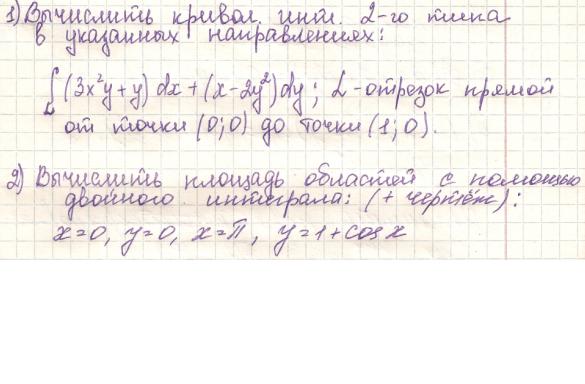 1) Вычислить кривол. инт. 2-го типа
в указанных направлениях:
∫_L (3x²y+y) dx + (x-2y²)dy; L - отрезок прямой
от точки (0;0) до точки (1;0).
2) Вычислить площадь областей с помощью
двойного интеграла: (+ чертёж):
x=0, y=0, x=π, y=1+cos x